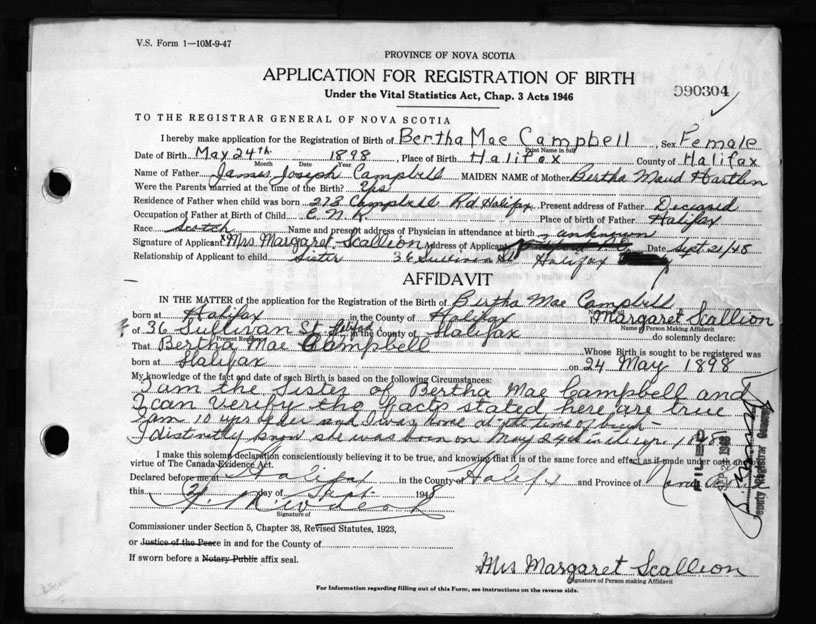 V.S. Form 1—10M-9-47
PROVINCE OF NOVA SCOTIA
APPLICATION FOR REGISTRATION OF BIRTH
Under the Vital Statistics Act, Chap. 3 Acts 1946
090304
TO THE REGISTRAR GENERAL OF NOVA SCOTIA
I hereby make application for the Registration of Birth of Bertha Mae Campbell, Sex Female
Print Name in full
Date of Birth May 24th 1898, Place of Birth Halifax County of Halifax
Month Date Year
Name of Father James Joseph Campbell MAIDEN NAME of Mother Bertha Maud Hartlen
Were the Parents married at the time of the Birth? Yes
Residence of Father when child was born 273 Campbell Rd Halifax Present address of Father Deceased
Occupation of Father at Birth of Child C.N.R. Place of birth of Father Halifax
Race Scotch Name and present address of Physician in attendance at birth unknown
Signature of Applicant Mrs Margaret Scallion Address of Applicant Date Sept. 21/48
Relationship of Applicant to child Sister 36 Sullivan St Halifax
AFFIDAVIT
IN THE MATTER of the application for the Registration of the Birth of Bertha Mae Campbell
born at Halifax in the County of Halifax Margaret Scallion
Name of Person Making Affidavit
of 36 Sullivan St in the County of Halifax do solemnly declare:
Present Residence
That Bertha Mae Campbell Whose Birth is sought to be registered was
born at Halifax on 24 May 1898
My knowledge of the fact and date of such Birth is based on the following Circumstances:
I am the Sister of Bertha Mae Campbell and
I can verify the facts stated here are true
I am 10 yrs older and I was home at the time of birth —
I distinctly know she was born on May 24th in the yr. 1898
I make this solemn declaration conscientiously believing it to be true, and knowing that it is of the same force and effect as if made under oath and
virtue of The Canada Evidence Act.
Declared before me at Halifax in the County of Halifax and Province of Nova Scotia
this 21 day of Sept 1948
Signature of
Commissioner under Section 5, Chapter 38, Revised Statutes, 1923,
or Justice of the Peace in and for the County of
If sworn before a Notary Public affix seal.
Mrs Margaret Scallion
Signature of Person making Affidavit
Deputy Registrar General
For Information regarding filling out of this Form, see instructions on the reverse side.